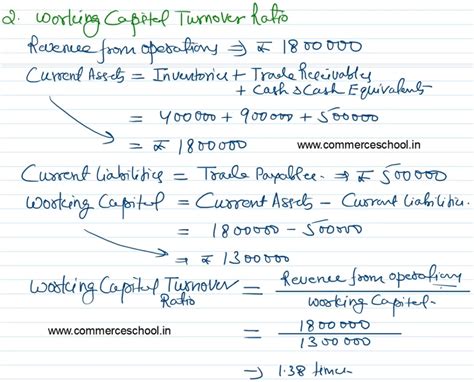 2. Working Capital Turnover Ratio
Revenue from operations ⇒ ₹ 1800000
Current Assets = Inventories + Trade Receivables
+ Cash & Cash Equivalents
= 400000 + 900000 + 500000
= ₹ 1800000
www.commerceschool.in
Current Liabilities = Trade Payables. ⇒ ₹ 500000
Working Capital = Current Assets - Current Liabilities.
= 1800000 - 500000
⇒ ₹ 1300000
Working Capital Turnover Ratio = Revenue from operations / Working Capital.
www.commerceschool.in
= 1800000 / 1300000
→ 1.38 times